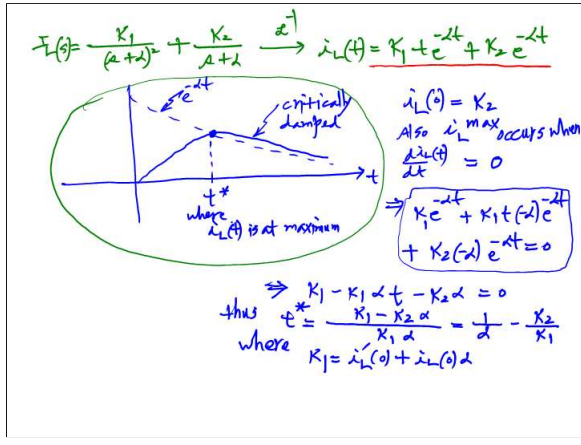 I_L(s) = K₁/(s+α)² + K₂/(s+α) —ℒ⁻¹→ i_L(t) = K₁ t e^{-αt} + K₂ e^{-αt}
e^{-αt}
critically
damped
t
t*
where
i_L(t) is at maximum
i_L(0) = K₂
Also i_L^max occurs when
di_L(t)/dt = 0
⇒ K₁ e^{-αt} + K₁ t(-α) e^{-αt}
+ K₂(-α) e^{-αt} = 0
⇒ K₁ - K₁ α t - K₂ α = 0
thus t* = (K₁ - K₂ α)/(K₁ α) = 1/α - K₂/K₁
where K₁ = i_L'(0) + i_L(0) α